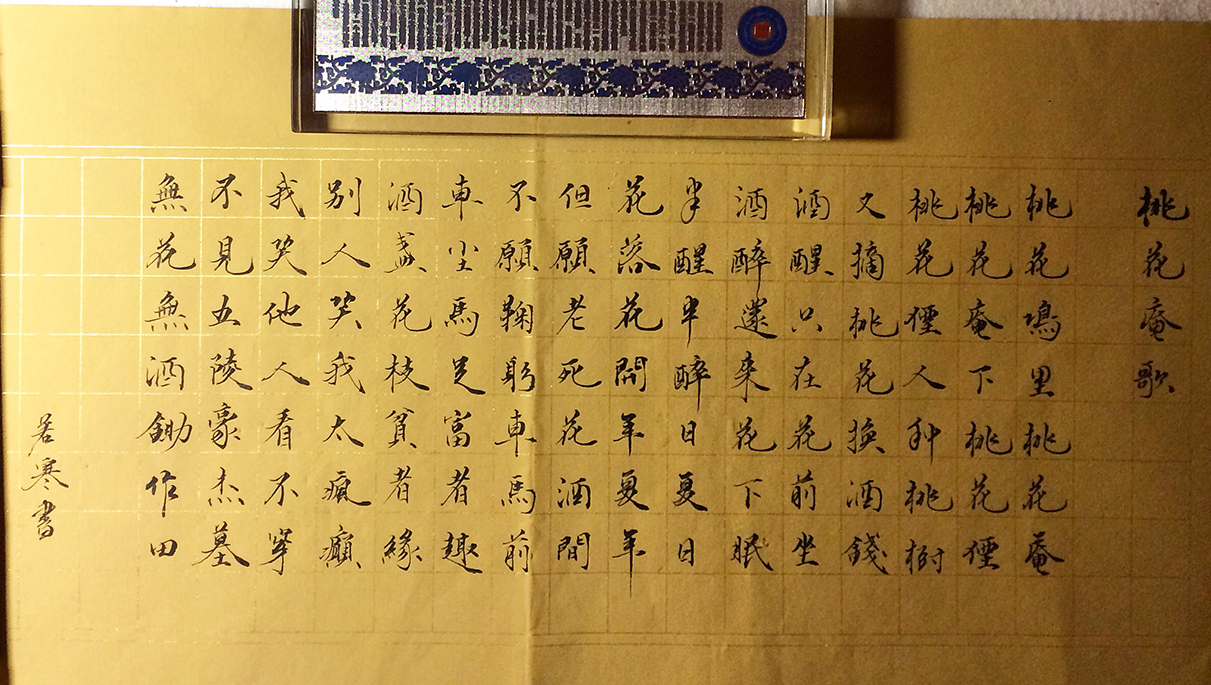 桃花庵歌
桃花塢里桃花庵
桃花庵下桃花僊
桃花僊人种桃樹
又摘桃花換酒錢
酒醒只在花前坐
酒醉還来花下眠
半醒半醉日复日
花落花開年复年
但願老死花酒間
不願鞠躬車馬前
車尘馬足富者趣
酒盞花枝貧者緣
别人笑我太瘋癲
我笑他人看不穿
不見五陵豪杰墓
無花無酒鋤作田
若寒書